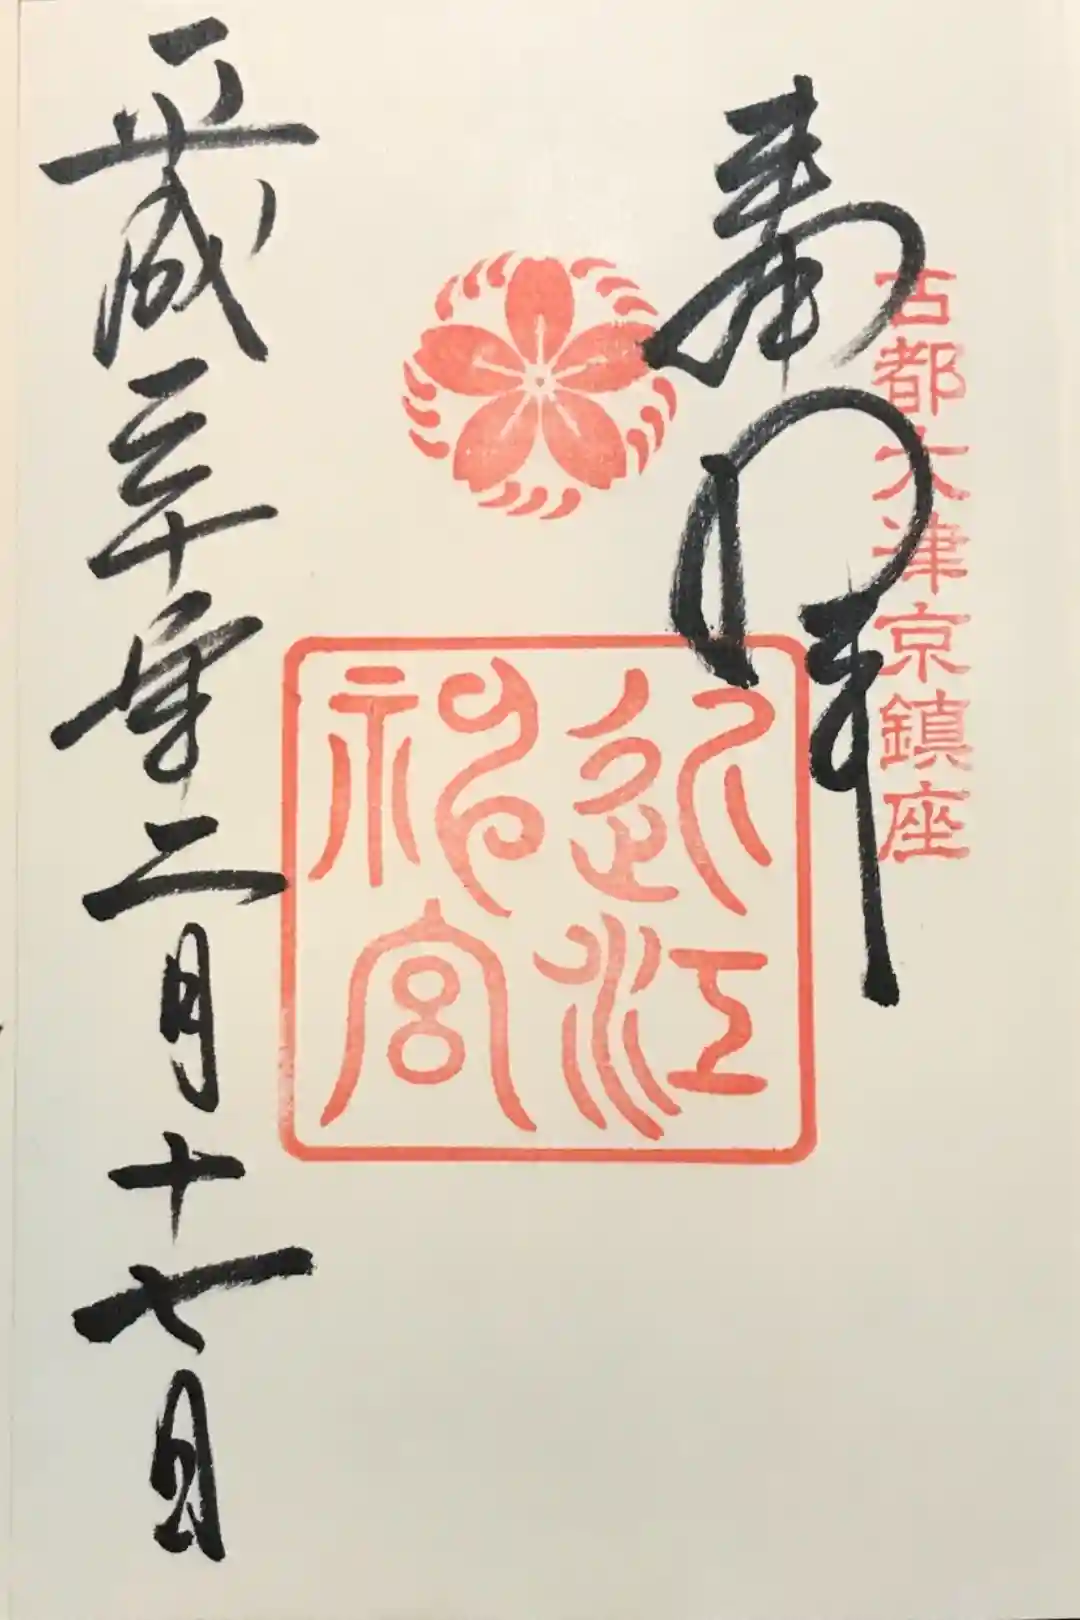 奉拝
古都大津京鎮座
近江
神宮
平成三十年二月十七日